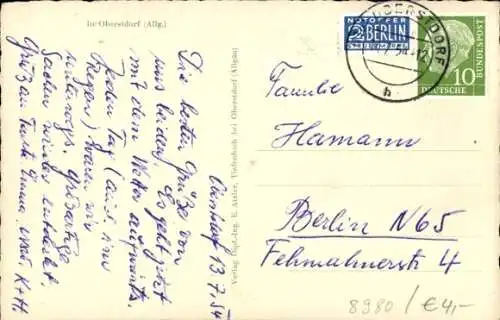 In Oberstdorf (Allg.)
Oberstdorf 13.7.54
Die besten Grüße von
uns beiden. Es geht jetzt
mit dem Wetter aufwärts.
Jeden Tag (auch im
Regen) waren wir
unterwegs. Großartige
Sachen wieder entdeckt.
Gruß an Tante Emma, K + H
Verlag Dipl.-Ing. E. Atzler, Tiefenbach bei Oberstdorf (Allgäu)
NOTOPFER
2 BERLIN
STEUERMARKE
OBERSTDORF
h
10
DEUTSCHE BUNDESPOST
Familie
Hamann
Berlin N65
Fehmahnerstr 4
8980/€4,-